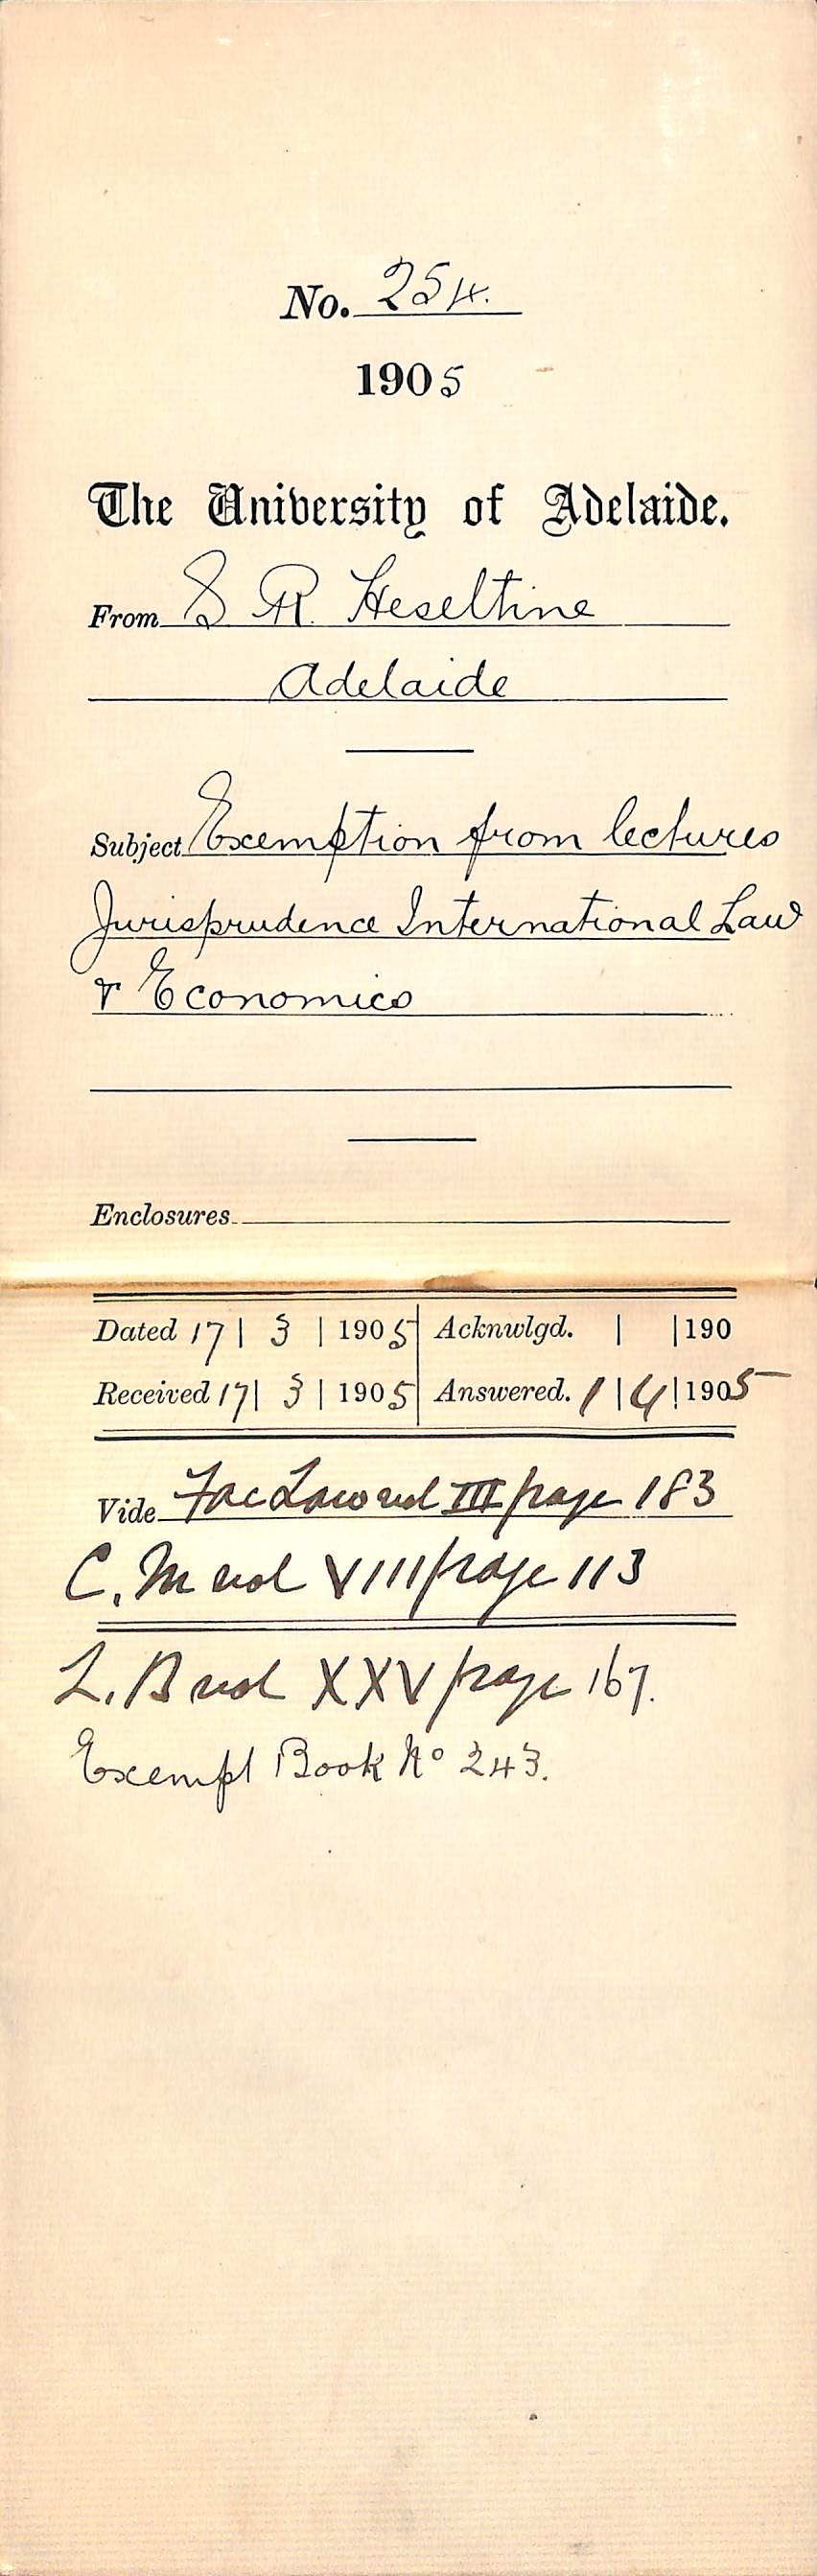 No. 254.
1905
The University of Adelaide.
From S R. Heseltine
Adelaide
Subject Exemption from lectures
Jurisprudence International Law
& Economics
Enclosures
Dated 17 | 3 | 1905 | Acknwlgd. | | 190
Received 17 | 3 | 1905 | Answered. 1 | 4 | 1905
Vide Fac Law vol III page 183
C. M vol VIII page 113
L. B vol XXV page 167.
Exempt Book No 243.